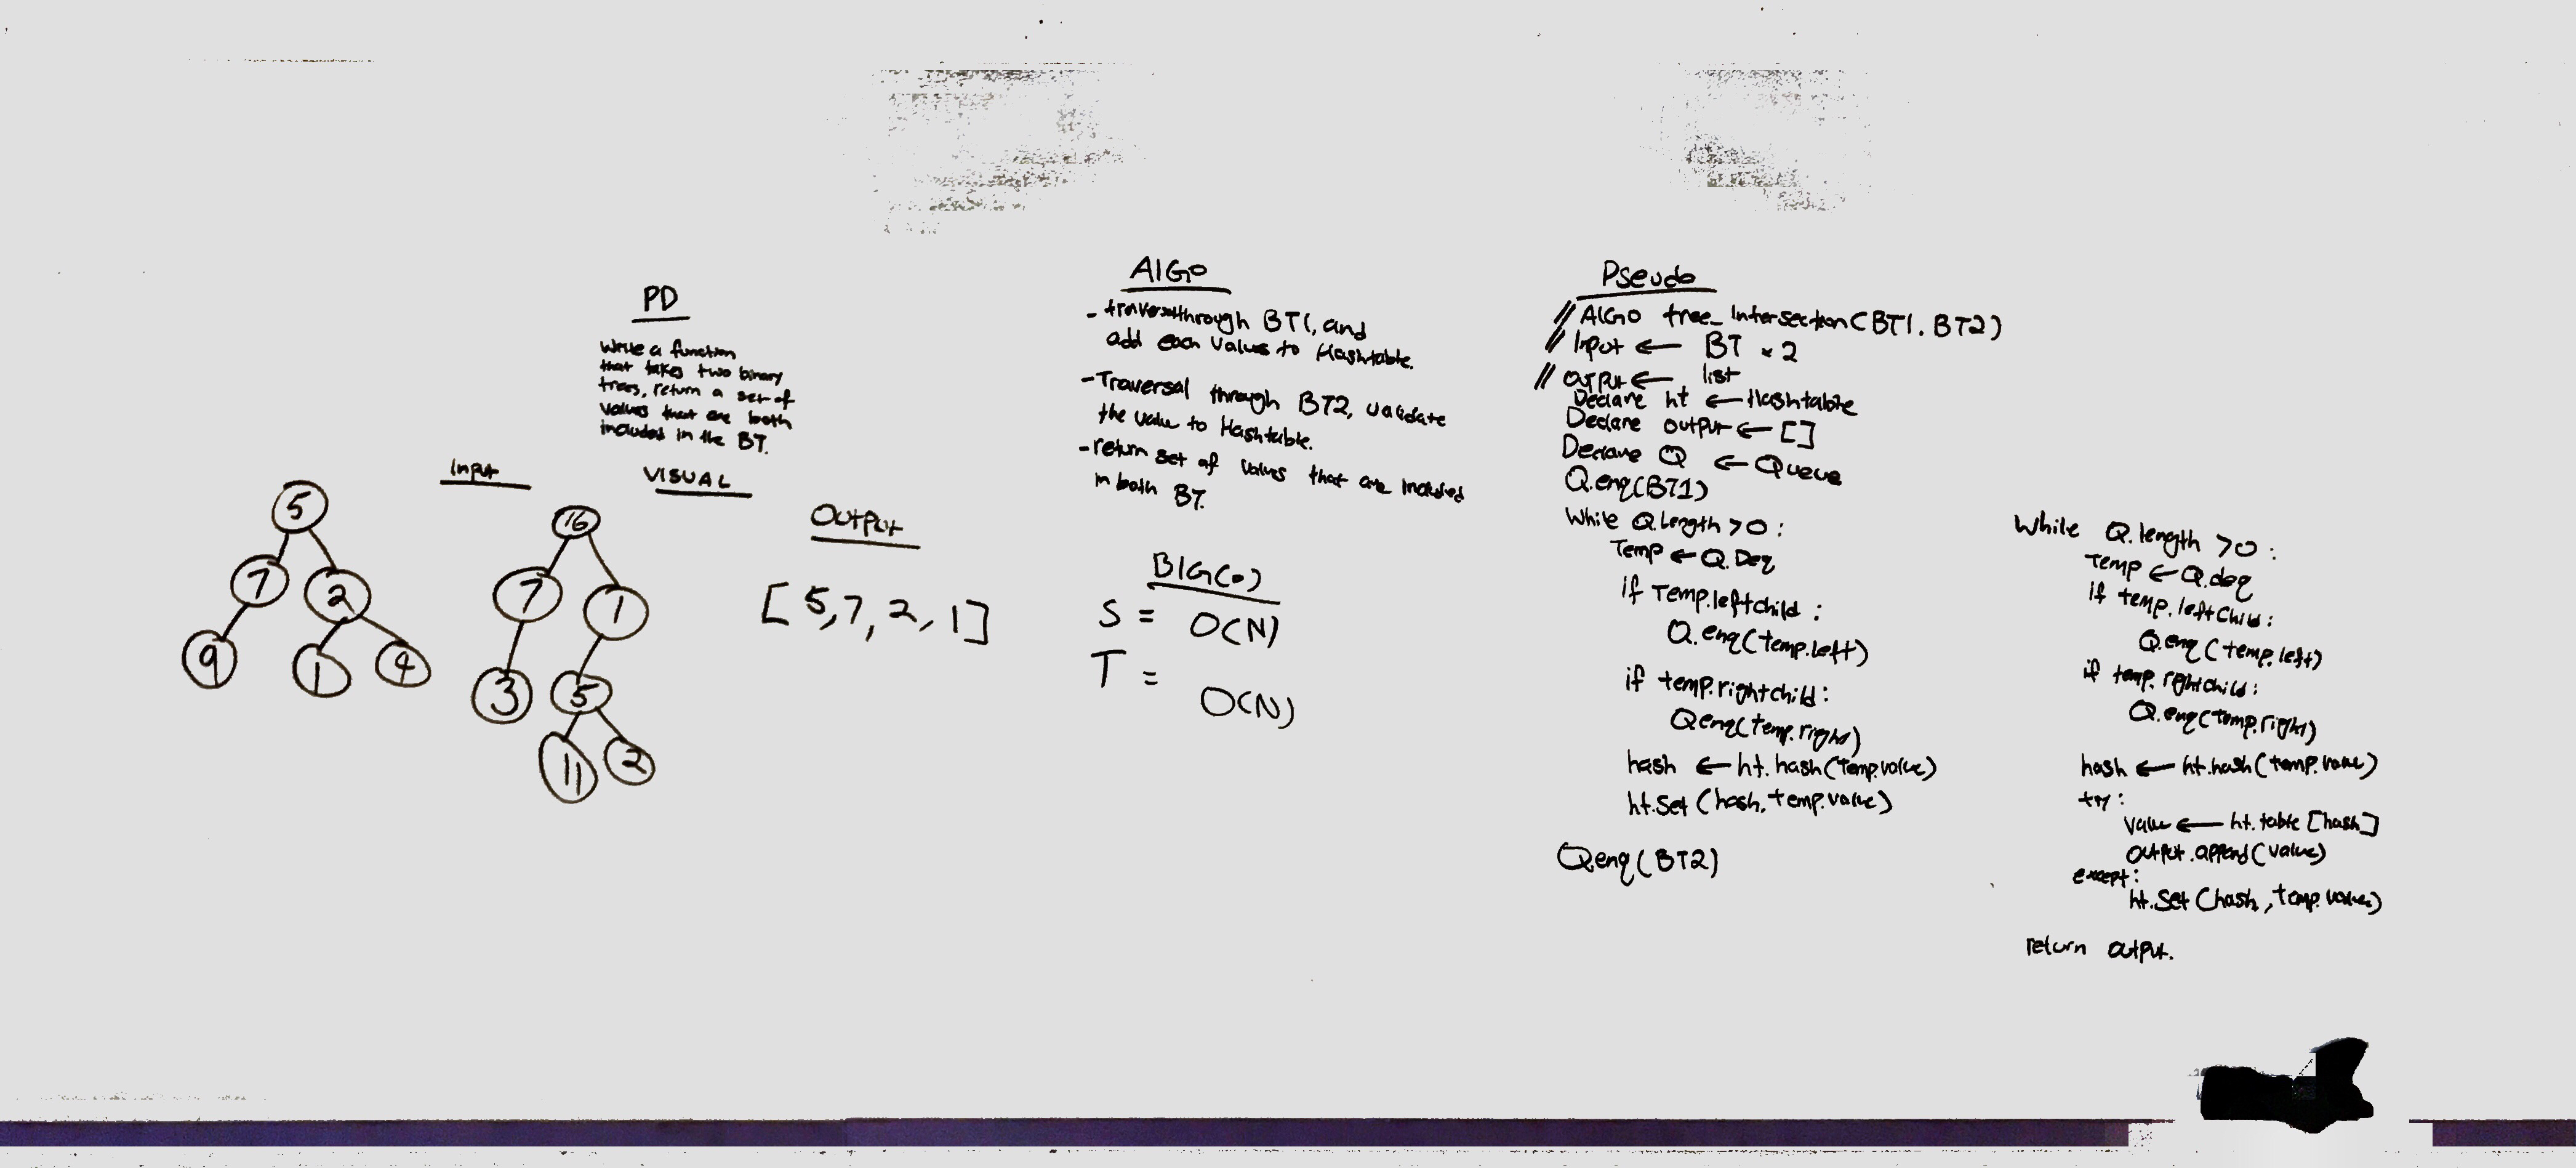 PD
Write a function
that takes two binary
trees, return a set of
values that are both
included in the BT.
Input
VISUAL
Output
5
7
2
9
1
4
16
7
1
3
5
11
2
[5,7,2,1]
AlGo
- through BT1, and
add each values to Hashtable.
- Traversal through BT2, validate
the value to Hashtable.
- return set of values that are included
in both BT.
BIG(o)
S = O(N)
T =
O(N)
Pseudo
// AlGO tree_Intersection(BT1, BT2)
// Input ← BT x 2
// output ← list
Declare ht ← Hashtable
Declare output ← []
Declare Q ← Queue
Q.enq(BT1)
While Q.length >0 :
Temp ← Q.Deq
if Temp.leftchild :
Q.enq(temp.left)
if temp.rightchild:
Q.enq(temp.right)
hash ← ht.hash(Temp.value)
ht.Set (hash, temp.value)
Q.enq(BT2)
While Q.length >0 :
Temp ← Q.deq
if temp.leftChild:
Q.enq(temp.left)
if temp.rightchild:
Q.enq(temp.right)
hash ← ht.hash(temp.value)
try:
Value ← ht.table [hash]
output.append(value)
except:
ht.Set (hash, temp.value)
return output.